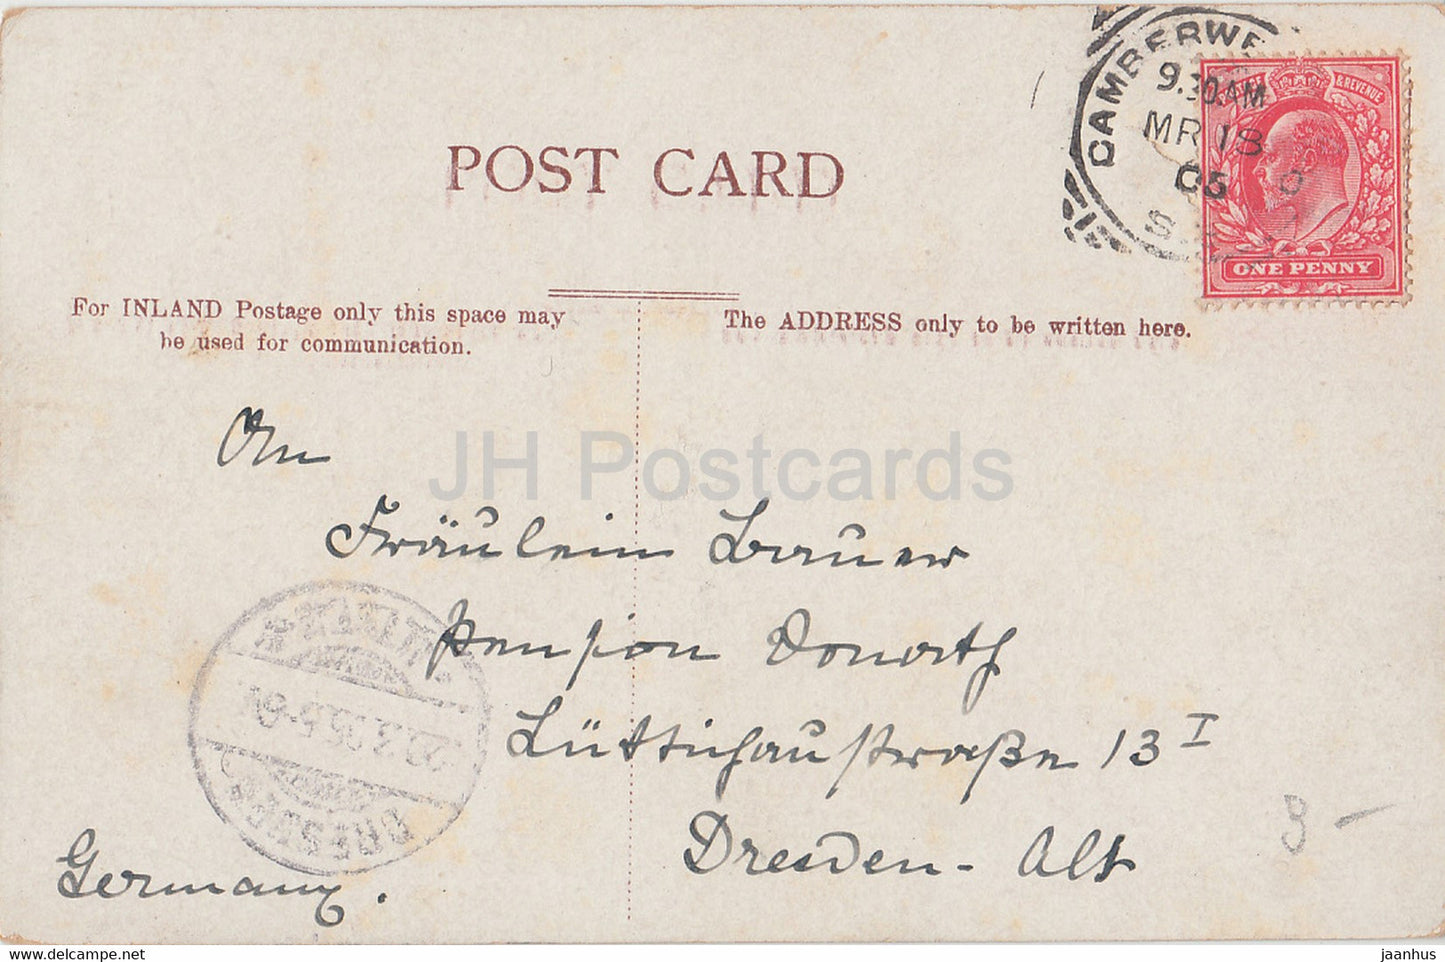 CAMBERWE
9.30AM
MR 18
05
S.
POSTAGE & REVENUE
ONE PENNY
POST CARD
For INLAND Postage only this space may
be used for communication.
The ADDRESS only to be written here.
An
Fräulein Bauer
Pension Donath
Lüttichaustraße 13 I
Dresden - Alt
Germany.
DRESDEN
20.3.05. 5-6
9 -
JH Postcards
delcampe.net
jaanhus